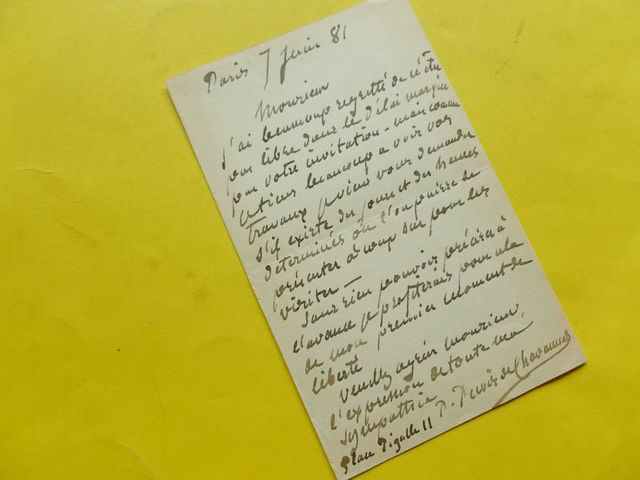 Paris 7 Juin 81
Monsieur
j'ai beaucoup regretté de n'être
pas libre dans le délai marqué
par votre invitation - mais comme
je tiens beaucoup a voir vos
travaux je viens vous demander
s'il existe des jours et des heures
déterminés où l'on puisse se
présenter à coup sur pour les
visiter -
Sans rien pouvoir préciser à
l'avance je profiterais pour cela
de mon premier moment de
liberté
Veuillez agréer monsieur,
l'expression de toute ma
sympathie
P. Puvis de Chavannes
Place Pigalle 11